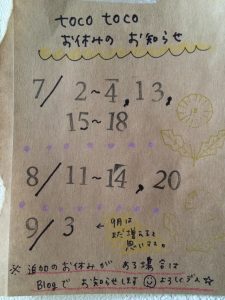 toco toco
お休みの お知らせ
7/ 2~4, 13,
15~18
8/ 11~14, 20
9/ 3
← 9月は
まだ増えると
思います。
※ 追加のお休みが ある場合は
Blogで お知らせします よろしくデス☆